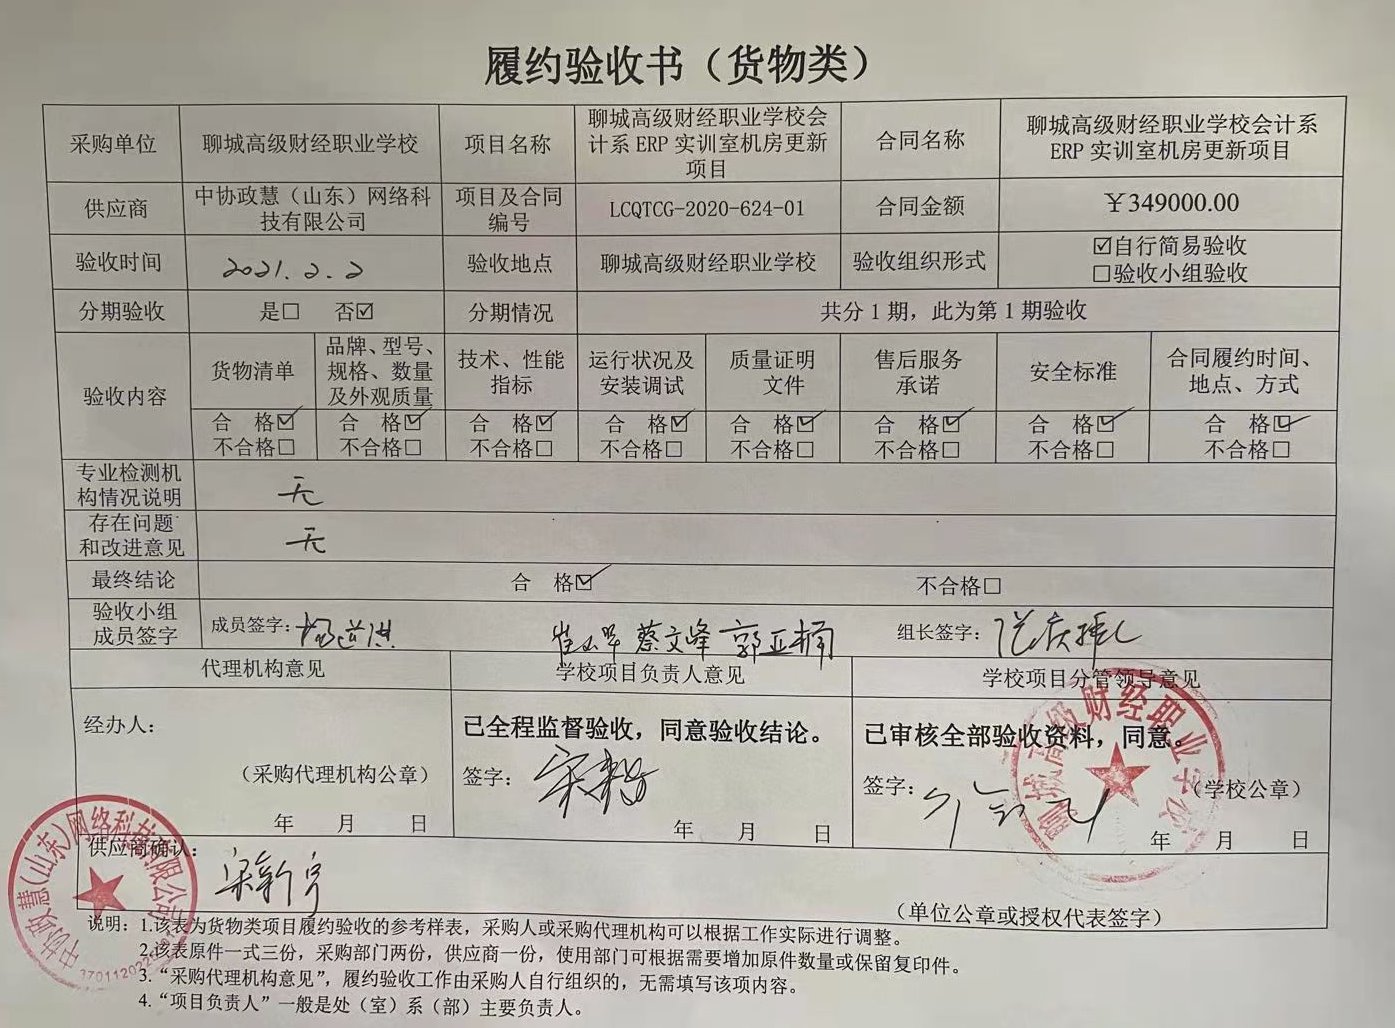 履约验收书（货物类）
采购单位 聊城高级财经职业学校 项目名称 聊城高级财经职业学校会计系ERP实训室机房更新项目 合同名称 聊城高级财经职业学校会计系ERP实训室机房更新项目
供应商 中协政慧（山东）网络科技有限公司 项目及合同编号 LCQTCG-2020-624-01 合同金额 ￥349000.00
验收时间 2021.2.2 验收地点 聊城高级财经职业学校 验收组织形式 ☑自行简易验收 ☐验收小组验收
分期验收 是☐ 否☑ 分期情况 共分1期，此为第1期验收
验收内容 货物清单 品牌、型号、规格、数量及外观质量 技术、性能指标 运行状况及安装调试 质量证明文件 售后服务承诺 安全标准 合同履约时间、地点、方式
合 格☑ 合 格☑ 合 格☑ 合 格☑ 合 格☑ 合 格☑ 合 格☑ 合 格☑
不合格☐ 不合格☐ 不合格☐ 不合格☐ 不合格☐ 不合格☐ 不合格☐ 不合格☐
专业检测机构情况说明 无
存在问题和改进意见 无
最终结论 合 格☑ 不合格☐
验收小组成员签字 成员签字： 蔡文峰 郭亚楠 组长签字：
代理机构意见 学校项目负责人意见 学校项目分管领导意见
经办人： 已全程监督验收，同意验收结论。 已审核全部验收资料，同意。
（采购代理机构公章） 签字： 签字： （学校公章）
年 月 日 年 月 日 年 月 日
供应商确认：
（单位公章或授权代表签字）
说明：1.该表为货物类项目履约验收的参考样表，采购人或采购代理机构可以根据工作实际进行调整。
2.该表原件一式三份，采购部门两份，供应商一份，使用部门可根据需要增加原件数量或保留复印件。
3.“采购代理机构意见”，履约验收工作由采购人自行组织的，无需填写该项内容。
4.“项目负责人”一般是处（室）系（部）主要负责人。
聊城高级财经职业学校
中协政慧(山东)网络科技有限公司